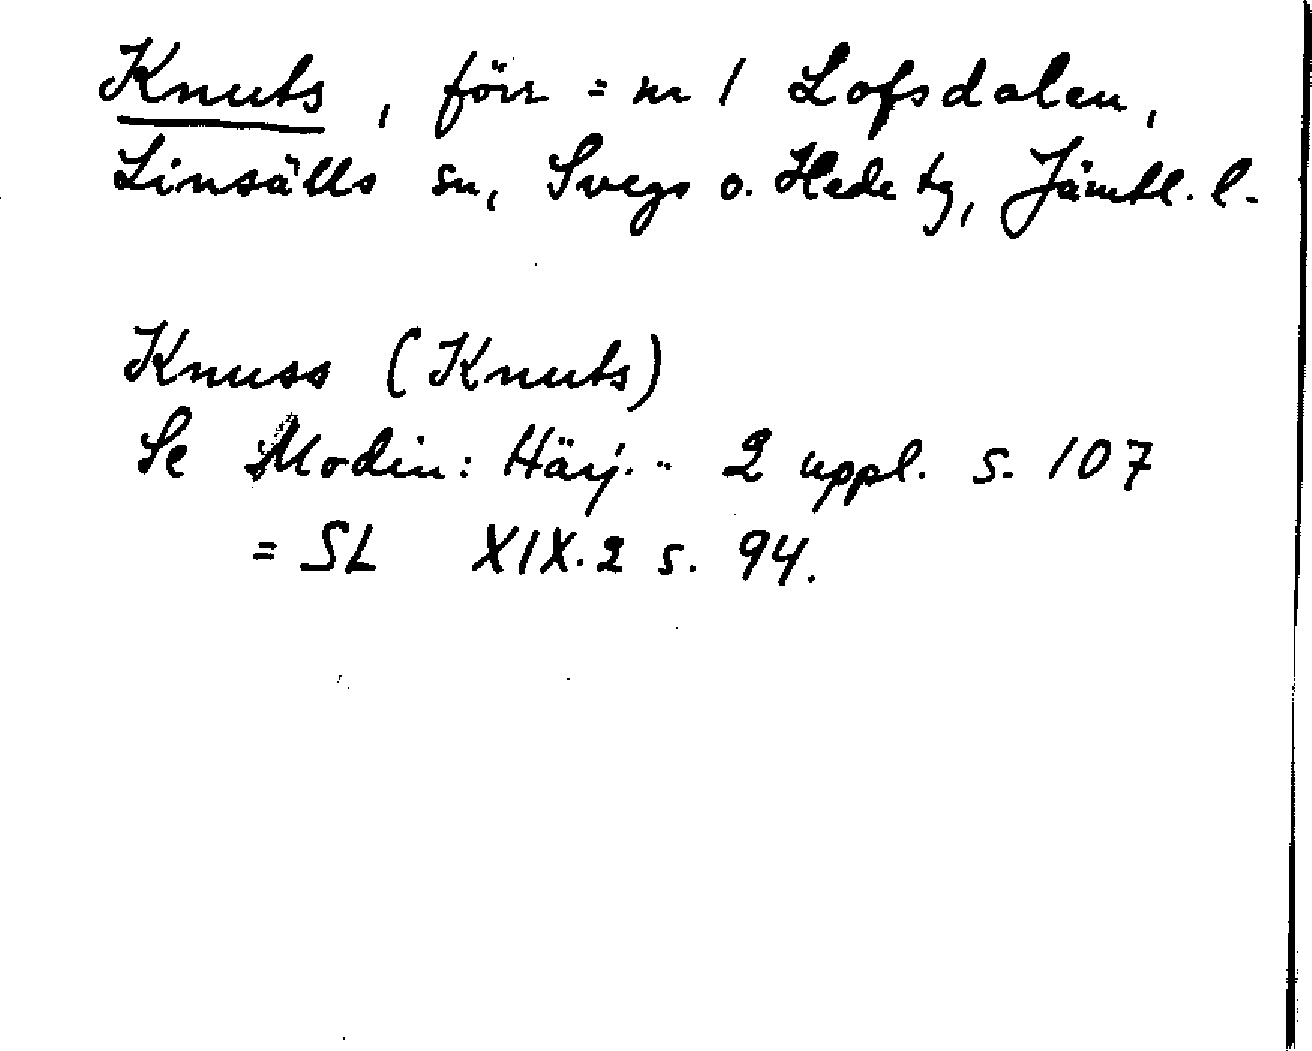 Knuts, förr = nr 1 Lofsdalen,
Linsälls sn, Svegs o. Hede tg, Jämtl. l.
Knuss (Knuts)
Se Modin: Härj. .. 2 uppl. s. 107
= SL XIX.2 s. 94.